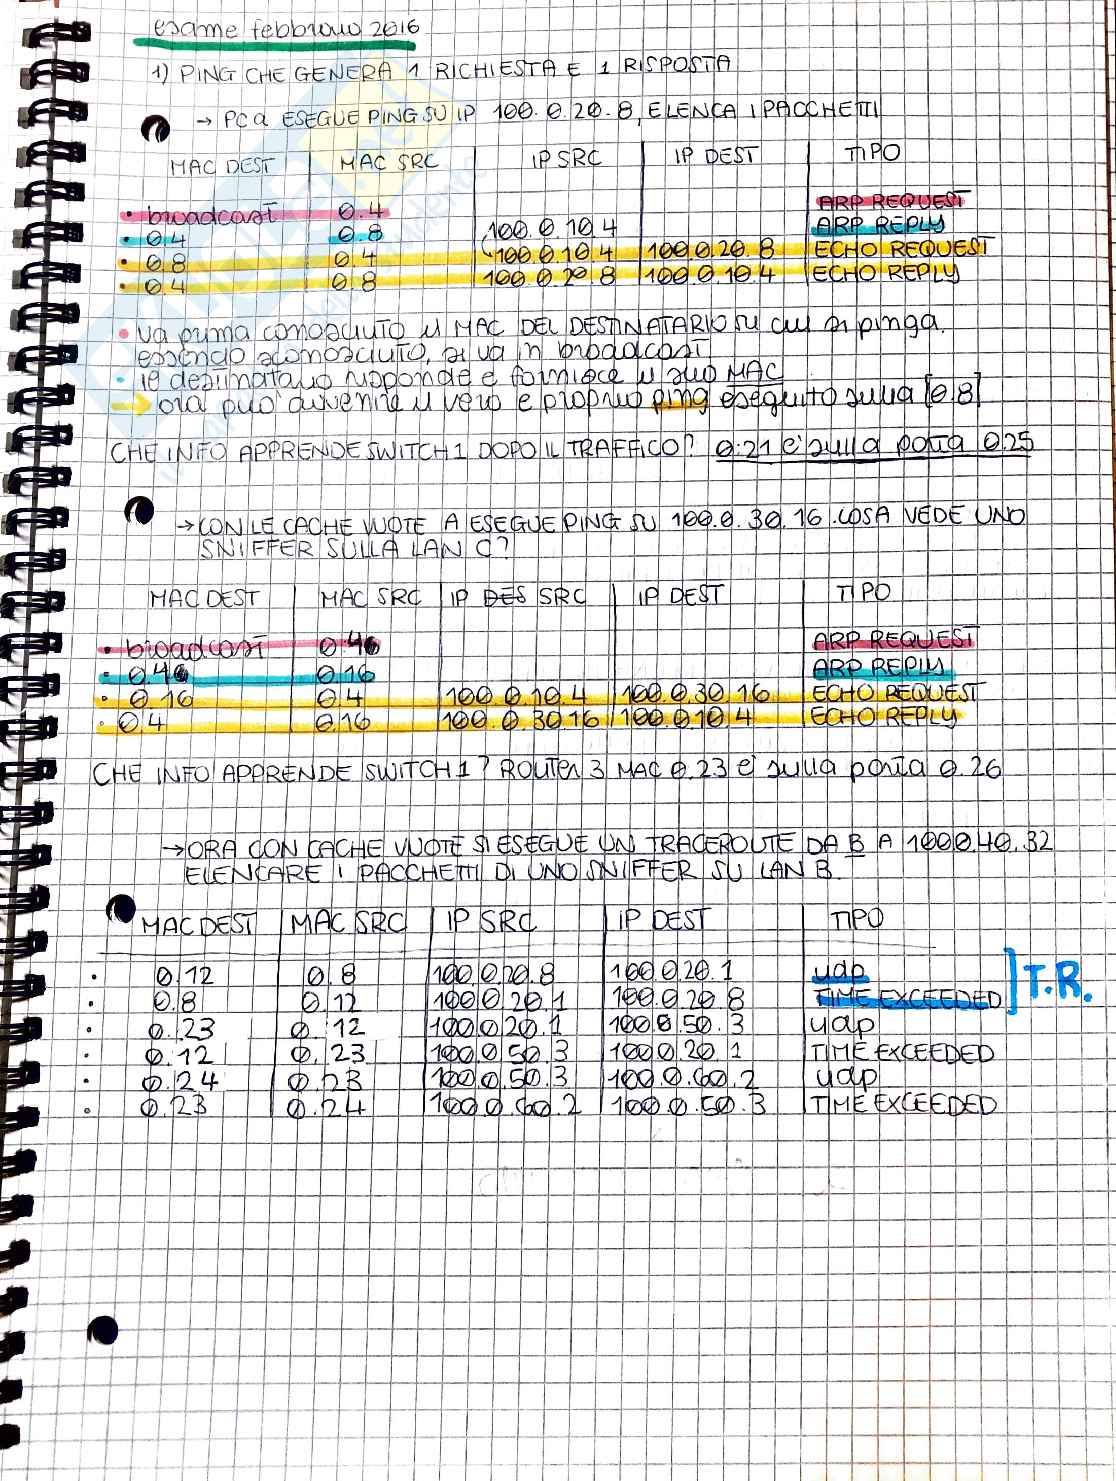 esame febbraio 2016
1) PING CHE GENERA 1 RICHIESTA E 1 RISPOSTA
→ PC a ESEGUE PING SU IP 100.0.20.8, ELENCA I PACCHETTI
MAC DEST MAC SRC IP SRC IP DEST TIPO
• broadcast 0.4 ARP REQUEST
• 0.4 0.8 100.0.10.4 ARP REPLY
• 0.8 0.4 100.0.10.4 100.0.20.8 ECHO REQUEST
• 0.4 0.8 100.0.20.8 100.0.10.4 ECHO REPLY
• va prima conosciuto il MAC DEL DESTINATARIO su cui si pinga.
essendo sconosciuto, si va in broadcast
• il destinatario risponde e fornisce il suo MAC
→ ora può avvenire il vero e proprio ping eseguito sulla [0.8]
CHE INFO APPRENDE SWITCH 1 DOPO IL TRAFFICO? 0.21 è sulla porta 0.25
→ CON LE CACHE VUOTE A ESEGUE PING SU 100.0.30.16. COSA VEDE UNO
SNIFFER SULLA LAN C?
MAC DEST MAC SRC IP DES SRC IP DEST TIPO
• broadcast 0.46 ARP REQUEST
• 0.46 0.16 ARP REPLY
• 0.16 0.4 100.0.10.4 100.0.30.16 ECHO REQUEST
• 0.4 0.16 100.0.30.16 100.0.10.4 ECHO REPLY
CHE INFO APPRENDE SWITCH 1? ROUTER 3 MAC 0.23 è sulla porta 0.26
→ ORA CON CACHE VUOTE SI ESEGUE UN TRACEROUTE DA B A 100.0.40.32
ELENCARE I PACCHETTI DI UNO SNIFFER SU LAN B.
MAC DEST MAC SRC IP SRC IP DEST TIPO
• 0.12 0.8 100.0.20.8 100.0.20.1 udp
• 0.8 0.12 100.0.20.1 100.0.20.8 TIME EXCEEDED ] T.R.
• 0.23 0.12 100.0.20.1 100.0.50.3 udp
• 0.12 0.23 100.0.50.3 100.0.20.1 TIME EXCEEDED
• 0.24 0.23 100.0.50.3 100.0.60.2 udp
• 0.23 0.24 100.0.60.2 100.0.50.3 TIME EXCEEDED